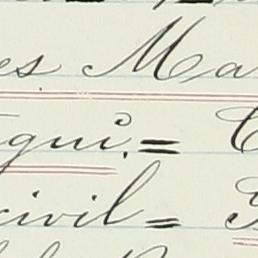 es Ma
gui. =
civil =